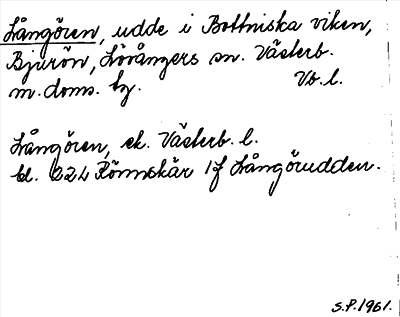 Långören, udde i Bottniska viken,
Bjurön, Lövångers sn. Västerb.
m. doms. tg. Vb. l.
Långören, ek. Västerb. l.
bl. 22 L Rönnskär 1 f Långörudden.
S.P. 1961.